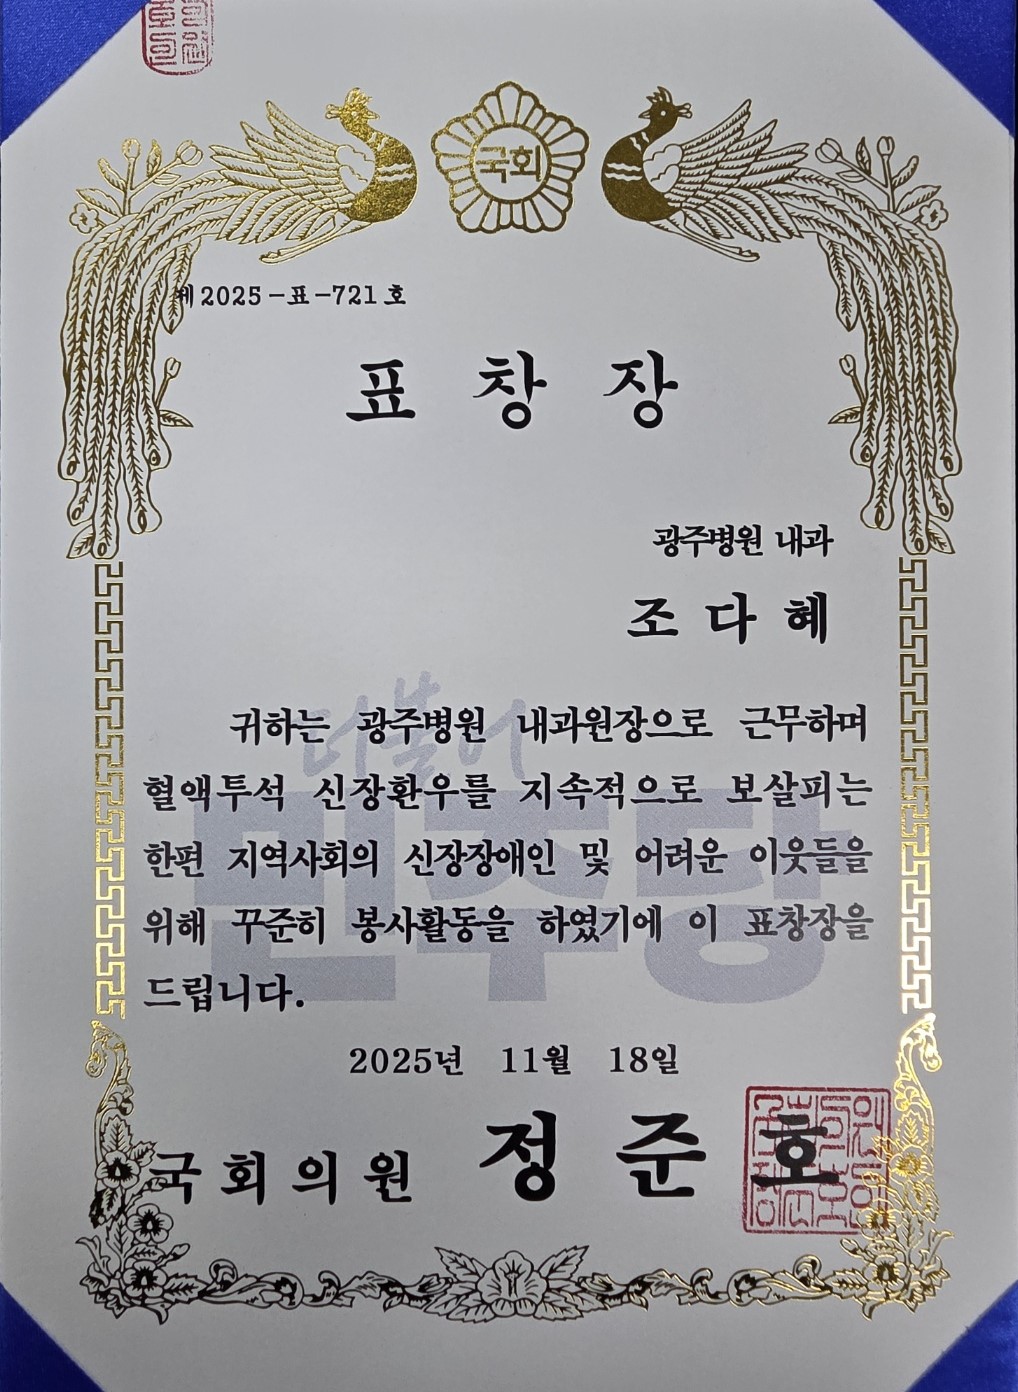 국회
제2025-표-721호
표창장
광주병원 내과
조다혜
귀하는 광주병원 내과원장으로 근무하며
혈액투석 신장환우를 지속적으로 보살피는
한편 지역사회의 신장장애인 및 어려운 이웃들을
위해 꾸준히 봉사활동을 하였기에 이 표창장을
드립니다.
더불어
민주당
2025년 11월 18일
국회의원 정준호